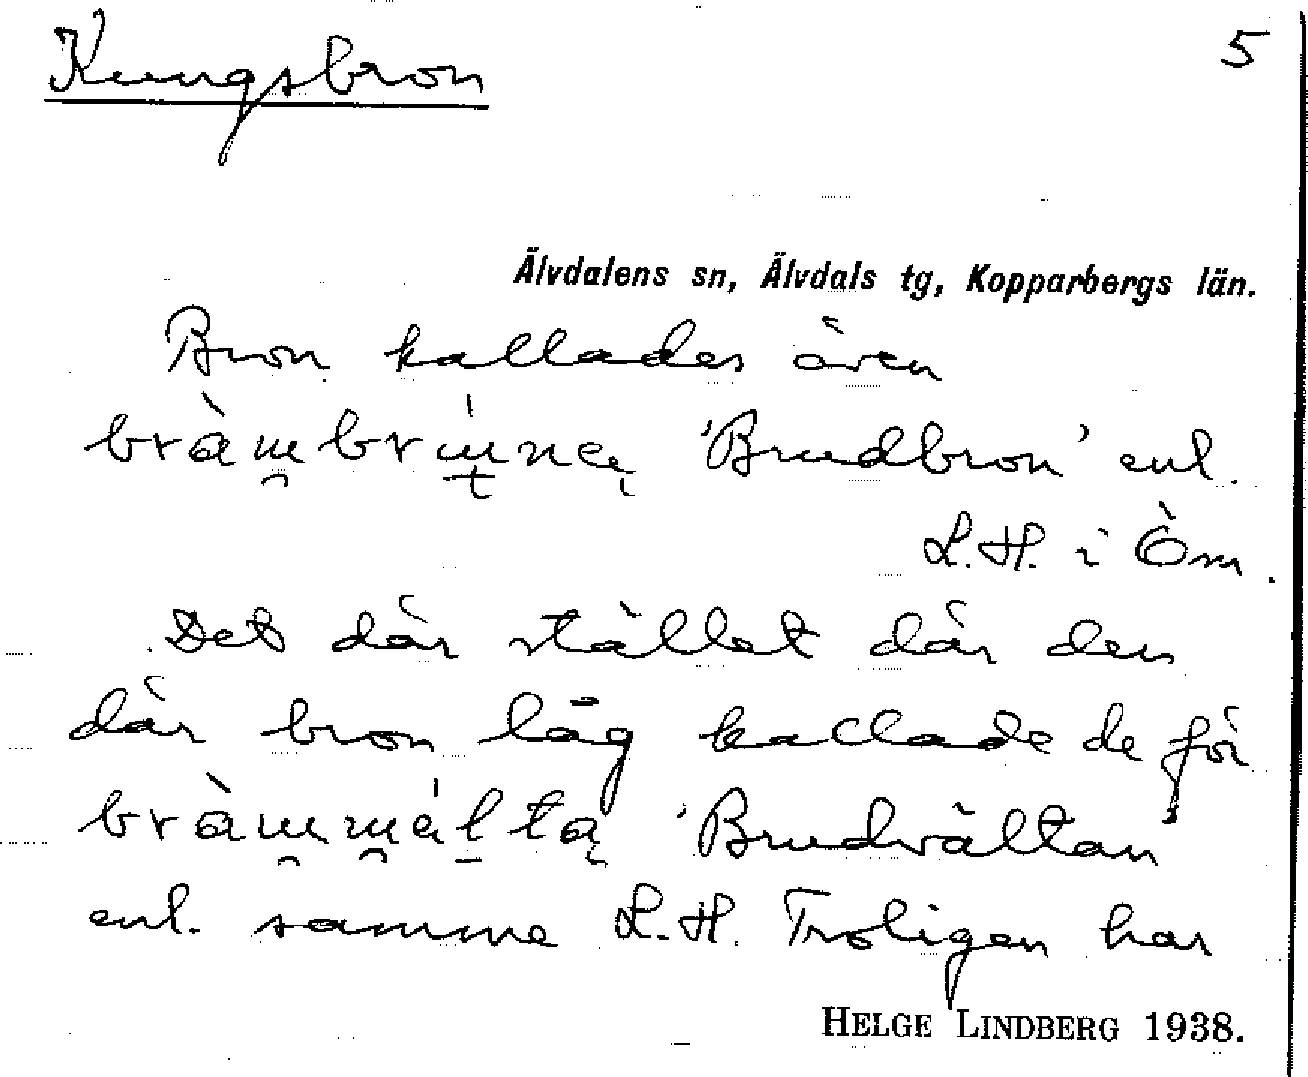 Kungsbron 5
Älvdalens sn, Älvdals tg, Kopparbergs län.
Bron kallades även
'Brudbron' enl.
L.H. i
Det där stället där den
där bron låg kallade de för
'Brudvältan
enl. samme L.H. Troligen har
HELGE LINDBERG 1938.